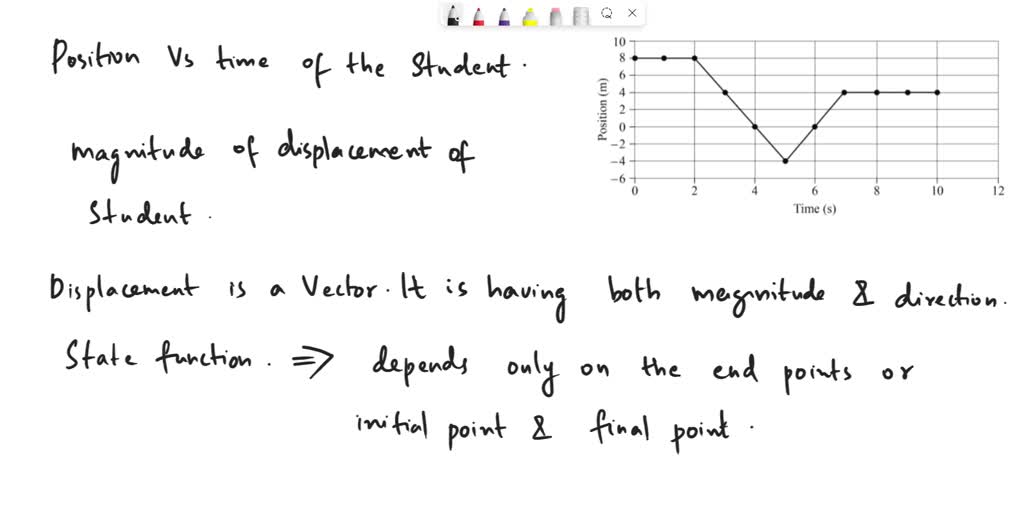 Position Vs time of the Student.
magnitude of displacement of
Student.
10
8
6
4
2
0
-2
-4
-6
Position (m)
0 2 4 6 8 10 12
Time (s)
Displacement is a Vector. It is having both magnitude & direction.
State function. ⇒ depends only on the end points or
initial point & final point.